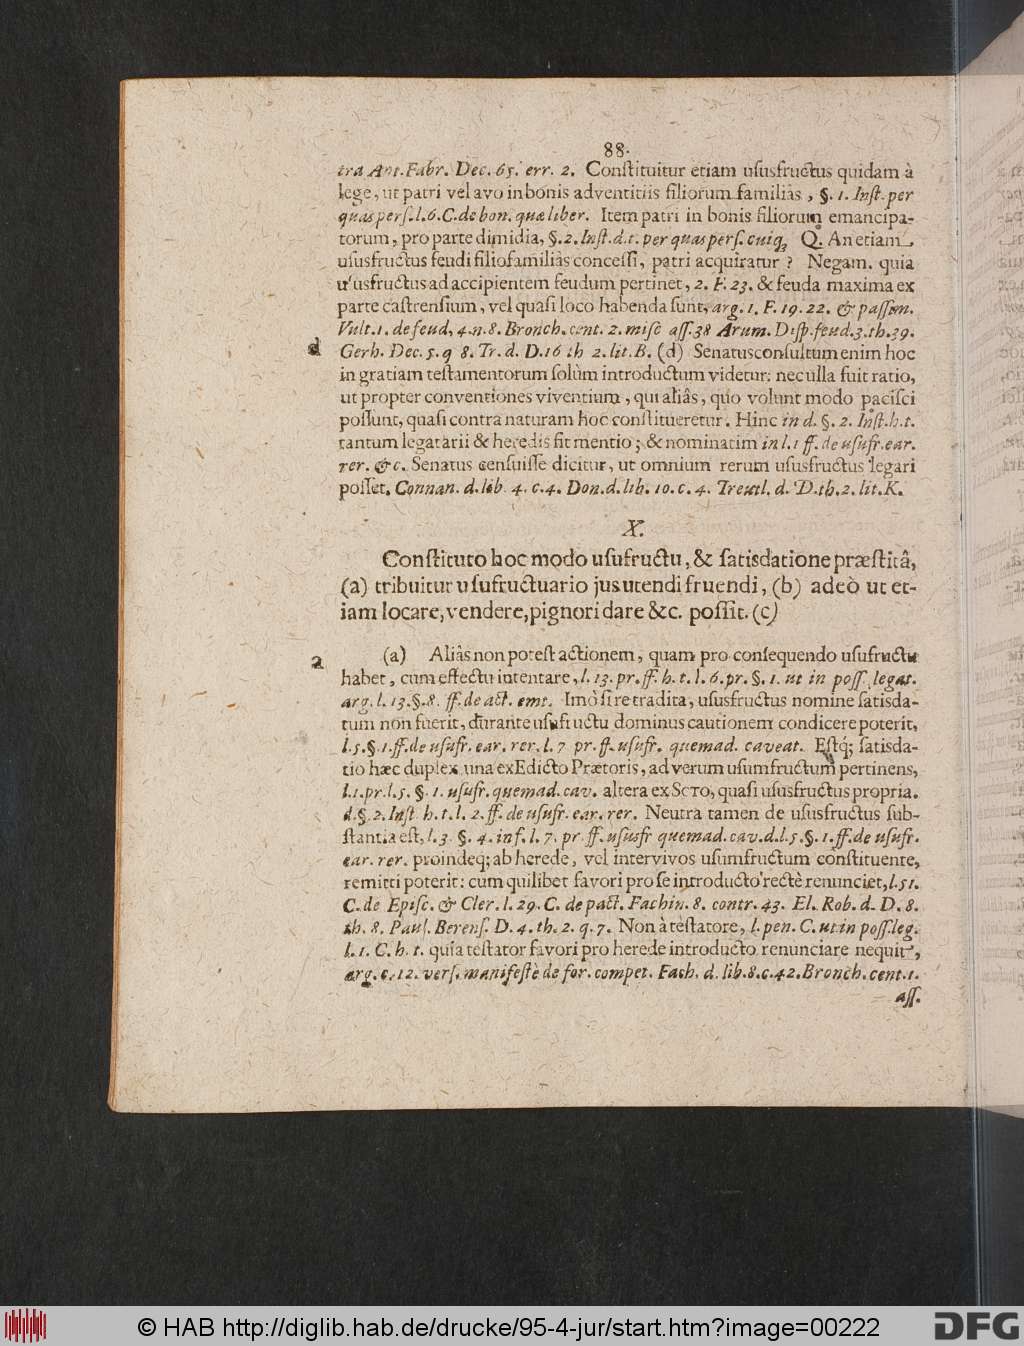 88.
tra Ant. Fabr. Dec. 65. err. 2. Constituitur etiam ususfructus quidam à
lege, ut patri vel avo in bonis adventitiis filiorum familiâs, §. 1. Inst. per
quas pers. l. 6. C. de bon. quæ liber. Item patri in bonis filiorum emancipa-
torum, pro parte dimidia, §. 2. Inst. d. t. per quas pers. cuiq; Q. An etiam
ususfructus feudi filiofamiliâs concessi, patri acquiratur? Negam. quia
ususfructus ad accipientem feudum pertinet, 2. F. 23. & feuda maxima ex
parte castrensium, vel quasi loco habenda sunt, arg. 1. F. 19. 22. & passim.
Vult. 1. de feud. 4. n. 8. Bronch. cent. 2. misc ass. 38 Arum. Disp. feud. 3. th. 39.
d Gerh. Dec. 5. q 8. Tr. d. D. 16 th 2. lit. B. (d) Senatusconsultum enim hoc
in gratiam testamentorum solùm introductum videtur: nec ulla fuit ratio,
ut propter conventiones viventium, qui aliâs, quo volunt modo pacisci
possunt, quasi contra naturam hoc constitueretur. Hinc in d. §. 2. Inst. h. t.
tantum legatarii & heredis fit mentio; & nominatim in l. 1 ff. de usufr. ear.
rer. &c. Senatus censuisse dicitur, ut omnium rerum ususfructus legari
posset. Connan. d. lib 4. c. 4. Don. d. lib. 10. c. 4. Treutl. d. D. th. 2. lit. K.
X.
Constituto hoc modo usufructu, & satisdatione præstitâ,
(a) tribuitur usufructuario jus utendi fruendi, (b) adeò ut et-
iam locare, vendere, pignori dare &c. possit. (c)
a (a) Aliâs non potest actionem, quam pro consequendo usufructu
habet, cum effectu intentare, l. 13. pr. ff. h. t. l. 6. pr. §. 1. ut in poss. legat.
arg. l. 13. §. 8. ff. de act. emt. Imò si re tradita, ususfructus nomine satisda-
tum non fuerit, durante usufructu dominus cautionem condicere poterit,
l. 5. §. 1. ff. de usufr. ear. rer. l. 7 pr. ff. usufr. quemad. caveat. Estq́; satisda-
tio hæc duplex, una ex Edicto Prætoris, ad verum usumfructum pertinens,
l. 1. pr. l. 5. §. 1. usufr. quemad. cav. altera ex Scto, quasi ususfructus propria.
d. §. 2. Inst h. t. l. 2. ff. de usufr. ear. rer. Neutra tamen de ususfructus sub-
stantia est, l. 3. §. 4. inf. l. 7. pr. ff. ususfr quemad. cav. d. l. 5. §. 1. ff. de usufr.
ear. rer. proindeq; ab herede, vel inter vivos usumfructum constituente,
remitti poterit: cùm quilibet favori pro se introducto rectè renunciet, l. 51.
C. de Episc. & Cler. l. 29. C. de pact. Fachin. 8. contr. 43. El. Rob. d. D. 8.
th. 8. Paul. Berens. D. 4. th. 2. q. 7. Non à testatore, l. pen. C. ut in poss. leg.
l. 1. C. h. t. quia testator favori pro herede introducto renunciare nequit,
arg. c. 12. vers. manifestè de for. compet. Fach. d. lib. 8. c. 42. Bronch. cent. 1.
ass.
© HAB http://diglib.hab.de/drucke/95-4-jur/start.htm?image=00222
DFG